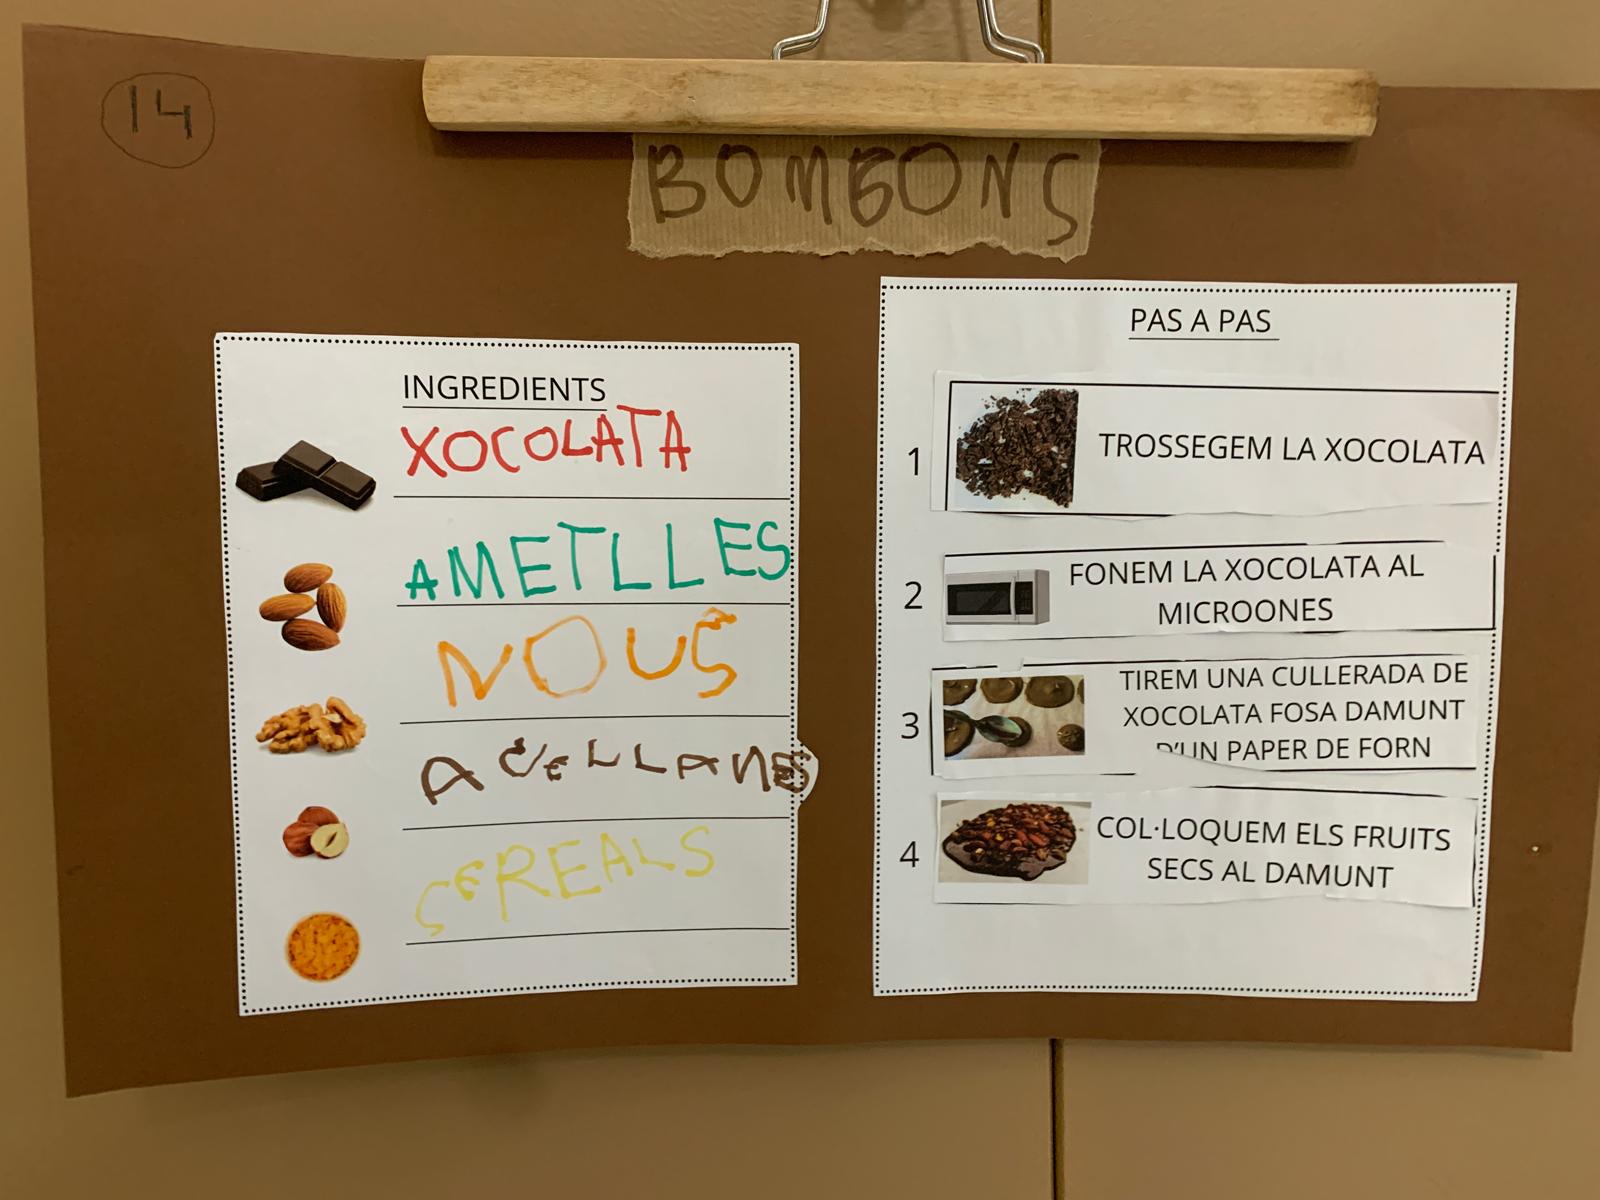 14
BOMBONS
INGREDIENTS
XOCOLATA
AMETLLES
NOUS
AVELLANES
CEREALS
PAS A PAS
1 TROSSEGEM LA XOCOLATA
2 FONEM LA XOCOLATA AL
MICROONES
3 TIREM UNA CULLERADA DE
XOCOLATA FOSA DAMUNT
D'UN PAPER DE FORN
4 COL·LOQUEM ELS FRUITS
SECS AL DAMUNT